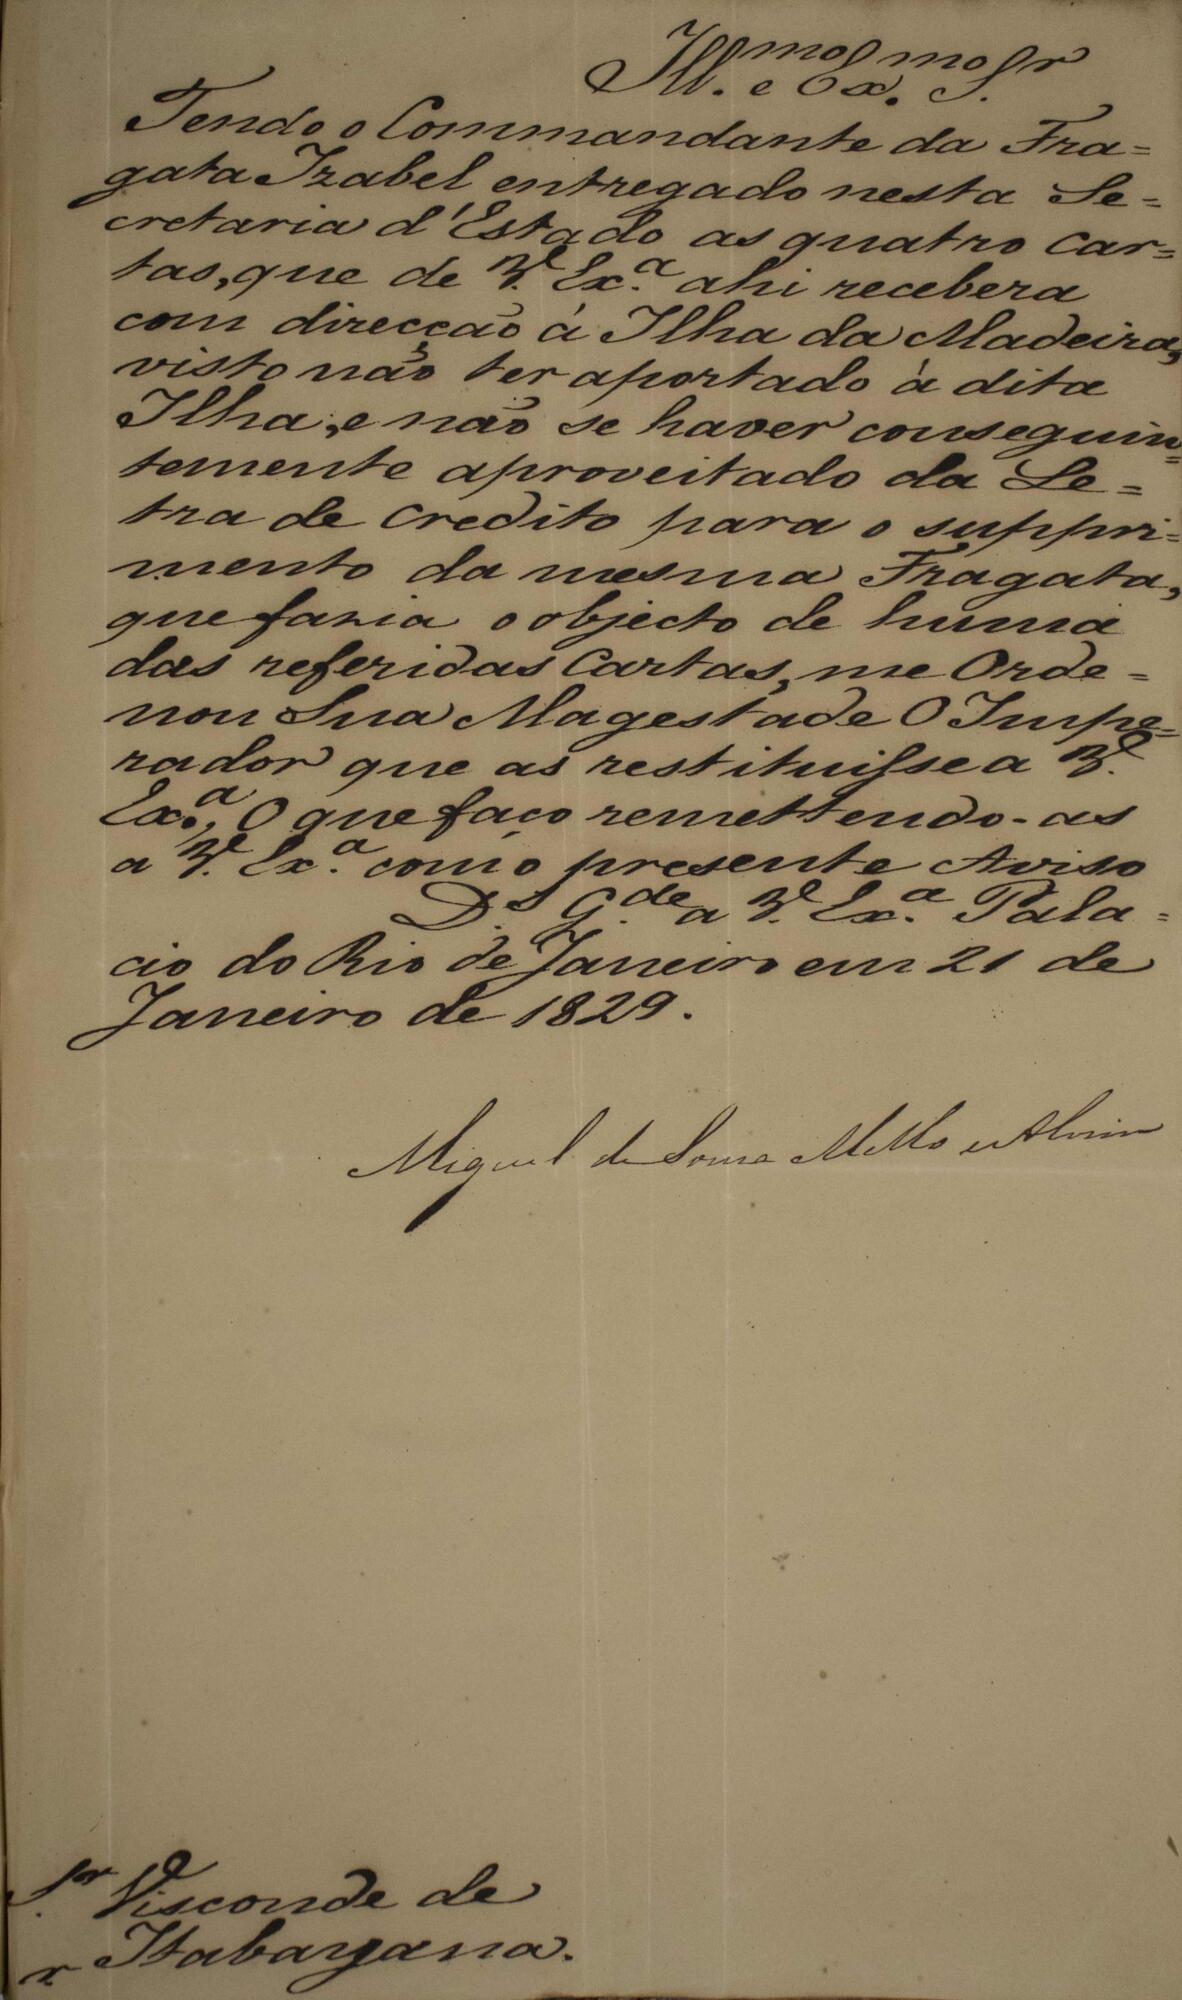 Ill.mo e Ex.mo Sr.
Tendo o Commandante da Fra=
gata Izabel entregado nesta Se=
cretaria d'Estado as quatro car=
tas, que de V. Ex.a ahi recebera
com direcção à Ilha da Madeira,
visto não ter aportado à dita
Ilha, e não se haver conseguin=
temente aproveitado da Le=
tra de credito para o suppri=
mento da mesma Fragata,
que fazia o objecto de huma
das referidas Cartas, me Orde=
nou Sua Magestade O Impe=
rador que as restituisse a V.
Ex.a, O que faço remettendo-as
a V. Ex.a com o presente Aviso
D.s G.de a V. Ex.a Pala=
cio do Rio de Janeiro em 21 de
Janeiro de 1829.
Miguel de Souza Mello e Alvim
Sr. Visconde de
Itabayana.